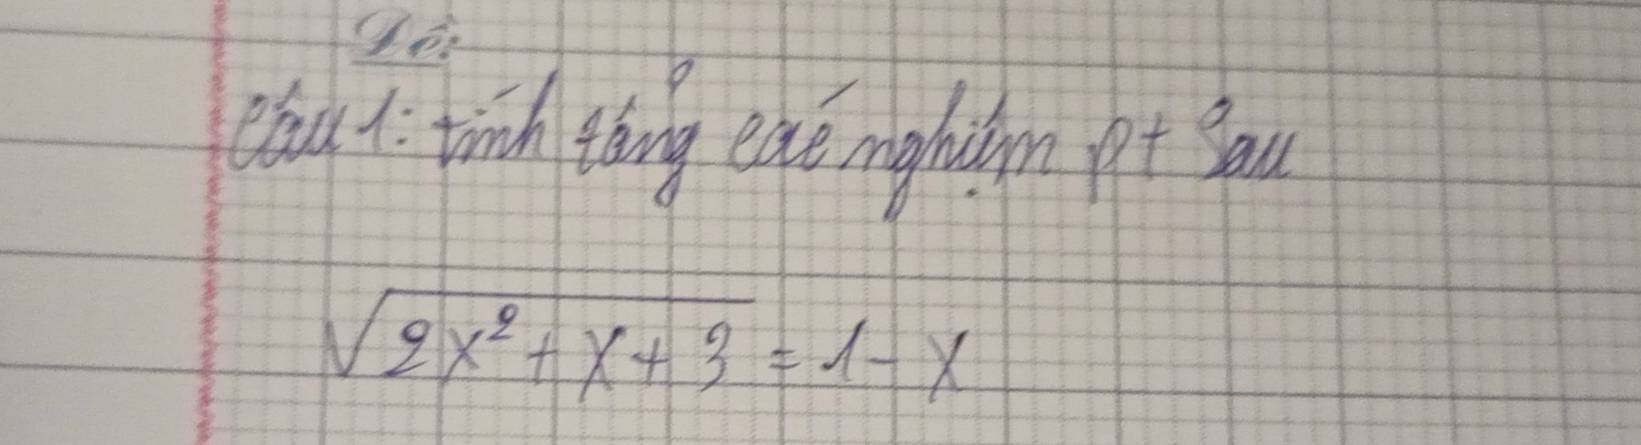 Đề:
Câu 1: tính tổng các nghiệm pt sau
√(2x² + x + 3) = 1 - x